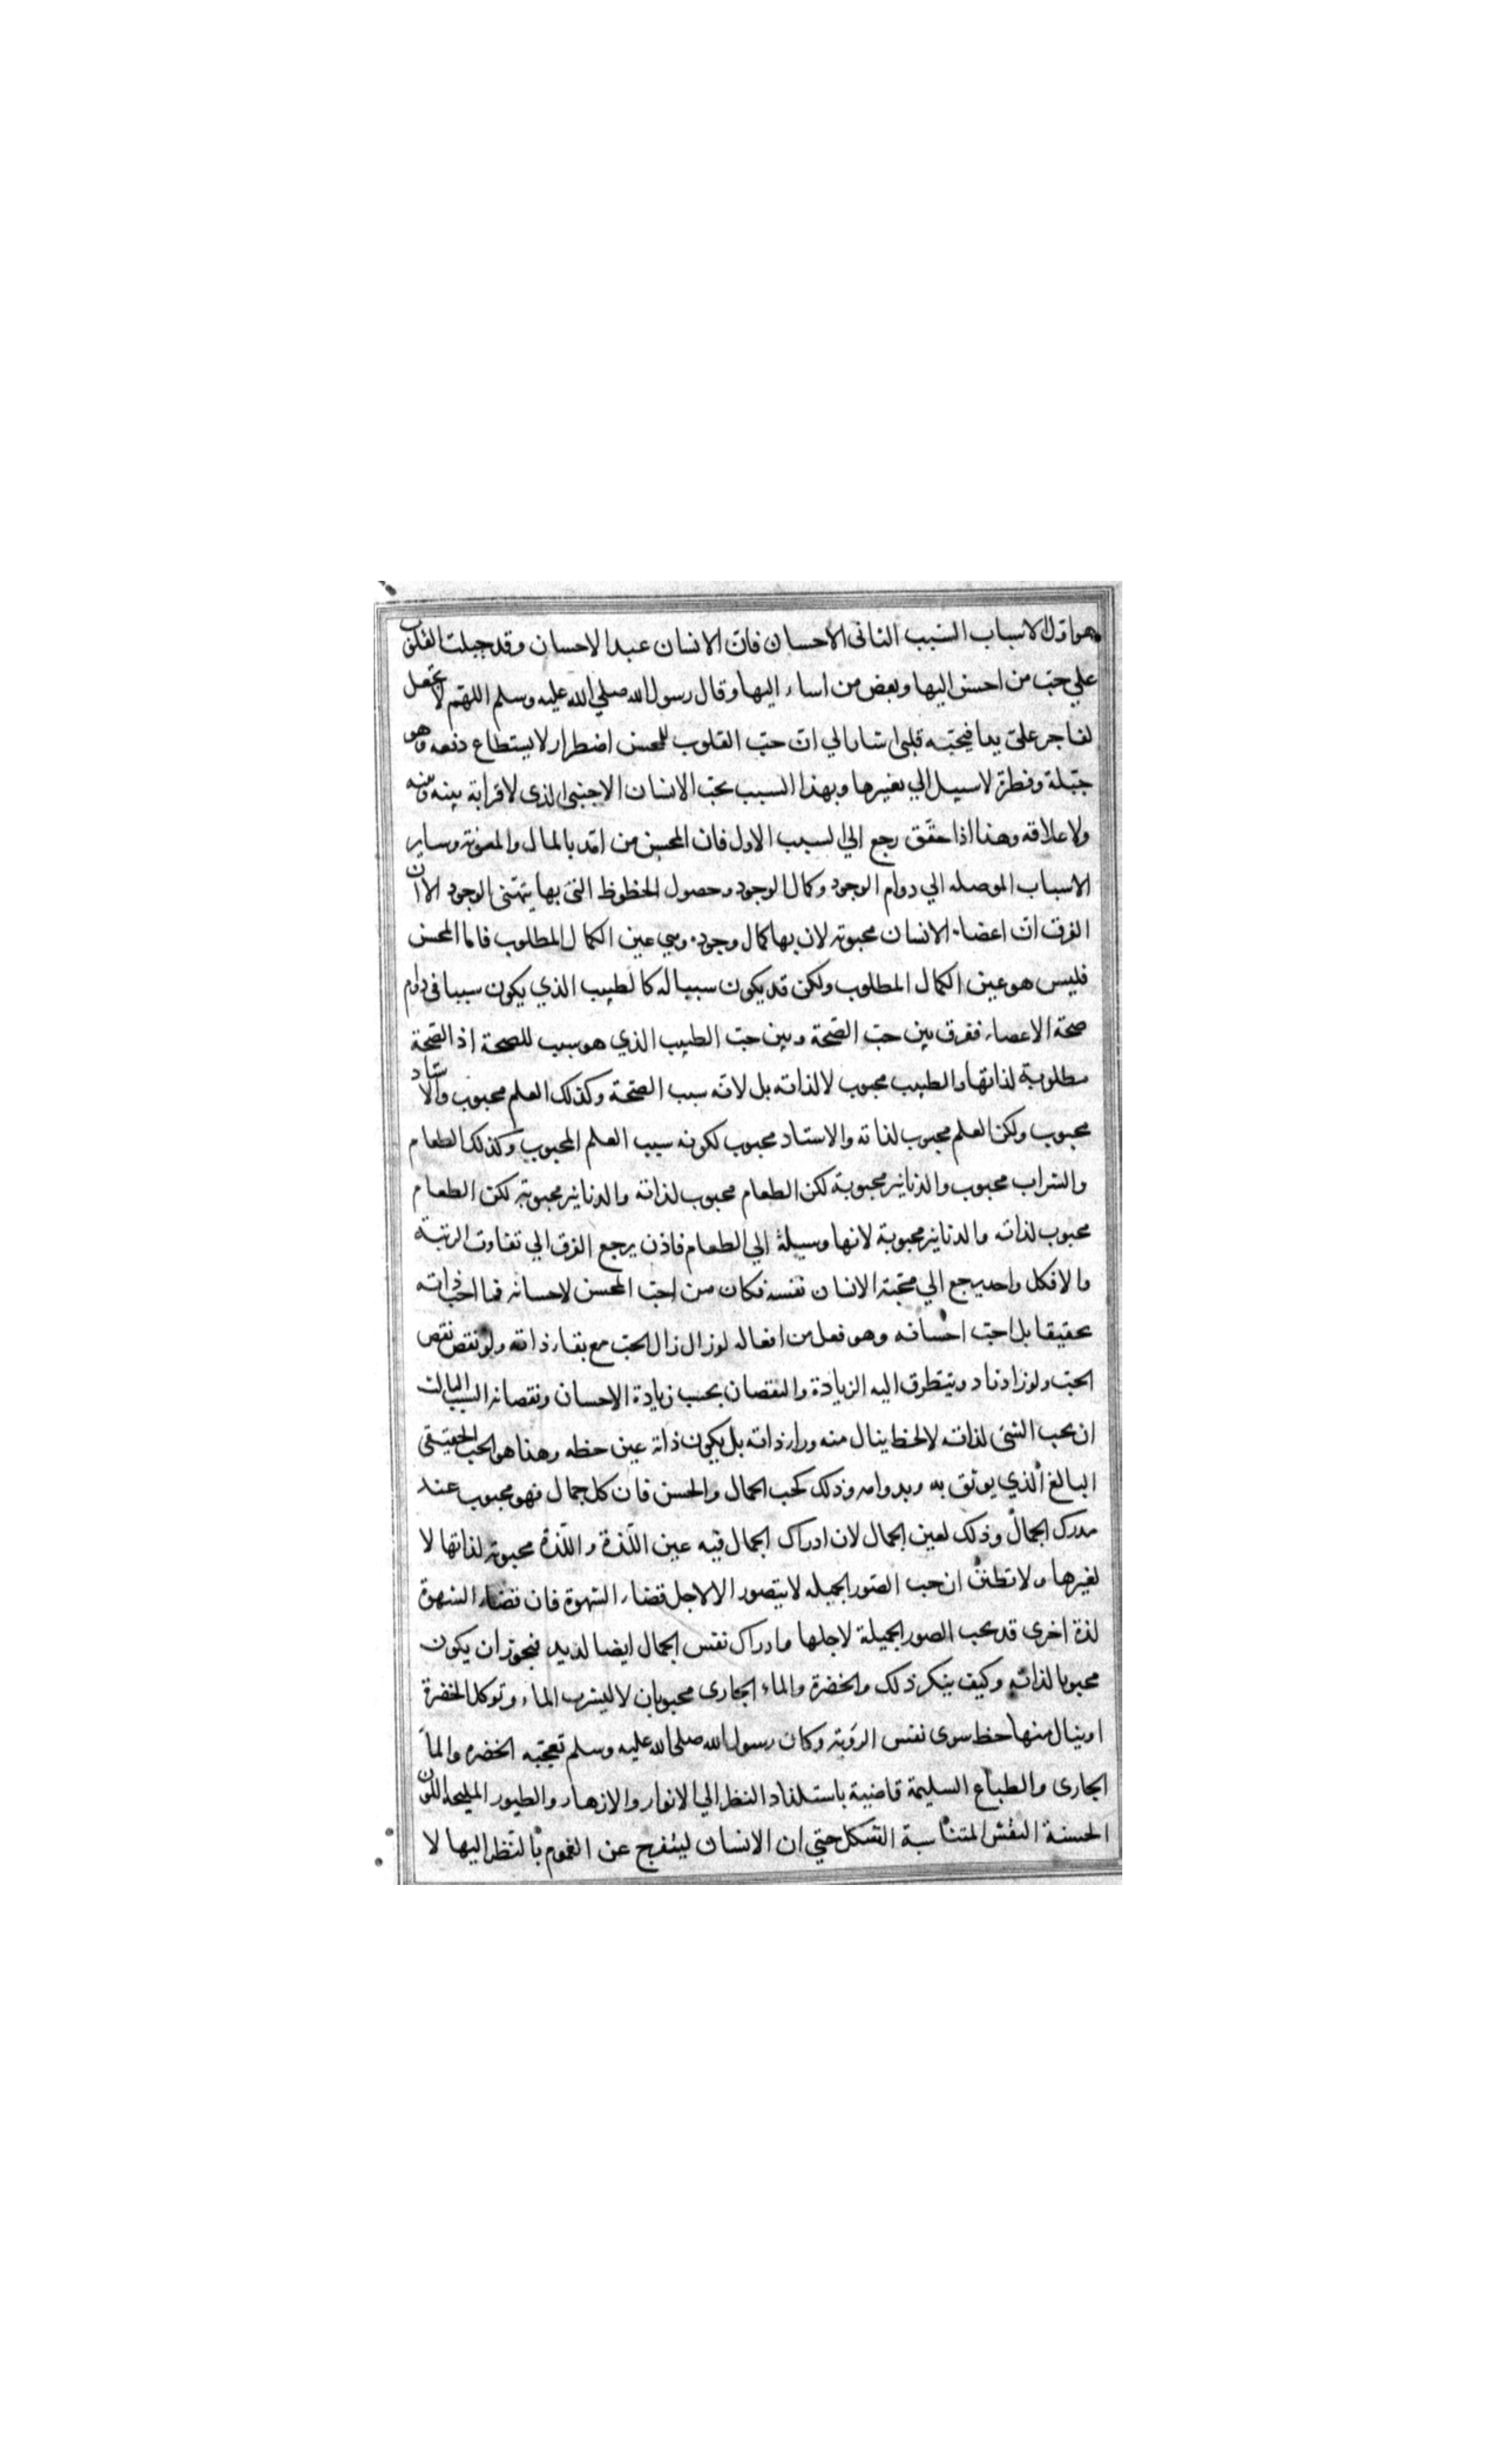 وهو اول الاسباب السبب الثانى الاحسان فان الانسان عبد الاحسان وقد جبلت القلوب
علي حب من احسن اليها وبغض من اساء اليها وقال رسول الله صلي الله عليه وسلم اللهم لا تجعل
لفاجر علىّ يدا فيحبّه قلبى اشار الي ان حبّ القلوب للمحسن اضطرار لا يستطاع دفعه وهو
جبّلة وفطرة لا سبيل الي تغييرها وبهذا السبب يحب الانسان الاجنبى الذى لا قرابة بينه وبينه
ولا علاقه وهذا اذا حقّق رجع الي السبب الاول فان المحسن من امّد بالمال والمعونة وساير
الاسباب الموصله الي دوام الوجود وكمال الوجود وحصول الحظوظ التى بها يتهنى الوجود الا ان
الفرق ان اعضاء الانسان محبوبة لان بها كمال وجوده وهي عين الكمال المطلوب فاما المحسن
فليس هو عين الكمال المطلوب ولكن قد يكون سببا له كالطبيب الذي يكون سببا فى دوام
صحة الاعضاء ففرق بين حبّ الصّحة وبين حبّ الطبيب الذي هو سبب للصحة اذ الصّحة
مطلوبة لذاتها والطبيب محبوب لا لذاته بل لانّه سبب الصّحة وكذلك العلم محبوب والاستاد
محبوب ولكن العلم محبوب لذاته والاستاد محبوب لكونه سبب العلم المحبوب وكذلك الطعام
والشراب محبوب والدنانير محبوبة لكن الطعام محبوب لذاته والدنانير محبوبة لكن الطعام
محبوب لذاته والدنانير محبوبة لانها وسيلة الي الطعام فاذن يرجع الفرق الي تفاوت الرتبة
والا فكل واحد يرجع الي محّبة الانسان نفسه فكان من احبّ المحسن لاحسانه فما احب ذاته
تحقيقا بل احبّ احسانه وهو فعل من افعاله لو زال زال الحبّ مع بقاء ذاته ولو نقص نقص
الحبّ ولو زاد زاد ويتطرق اليه الزيادة والنقصان بحسب زيادة الاحسان ونقصانه السبب الثالث
ان يحب الشئ لذاته لا لحظ ينال منه وراء ذاته بل يكون ذاته عين حظه وهذا هو الحب الحقيقى
البالغ الذي يوثق به وبدوامه وذلك كحب الجمال والحسن فان كل جمال فهو محبوب عند
مدرك الجمال وذلك لعين الجمال لان ادراك الجمال فيه عين اللّذة واللّذة محبوبة لذاتها لا
لغيرها ولا تظننّ ان حب الصّور الجميله لا يتصور الا لاجل قضاء الشهوة فان قضاء الشهوة
لذة اخرى قد يحب الصور الجميلة لاجلها وادراك نفس الجمال ايضا لذيذ فيجوز ان يكون
محبوبا لذاته وكيف ينكر ذلك والخضرة والماء الجارى محبوبان لا ليشرب الماء وتوكل الخضرة
او ينال منها حظ سوى نفس الرؤية وكان رسول الله صلى الله عليه وسلم تعجبّه الخضره والمآ
الجارى والطباع السليمة قاضية باستلذاذ النظر الي الانوار والازهار والطيور المليحة اللون
الحسنة النقش المتناسبة الشكل حتي ان الانسان لينفرج عن الغموم بالنّظر اليها لا